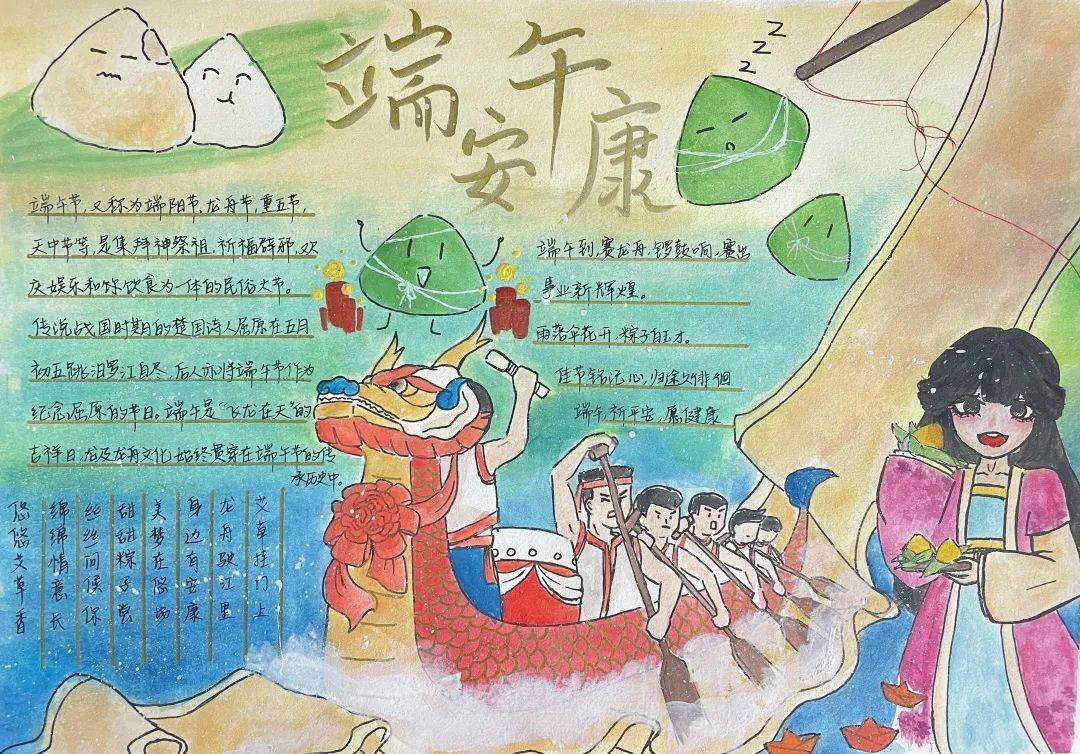 端午安康
z
z
z
端午节，又称为端阳节，龙舟节，重五节，
天中节等，是集拜神祭祖、祈福辟邪，欢
庆娱乐和饮食为一体的民俗大节。
传说战国时期的楚国诗人屈原在五月
初五跳汨罗江自尽，后人亦将端午节作为
纪念屈原的节日，端午是“飞龙在天”的
吉祥日，龙及龙舟文化始终贯穿在端午节的传
承历史中。
端午到，赛龙舟，锣鼓响，赛出
事业新辉煌。
雨落伞花开，粽子白玉才。
佳节铭记心，归途又徘徊
端午，祈平安，愿健康
艾草挂门上
龙舟驶江里
身边有安康
美梦在悠场
甜甜粽子尝
丝丝问候保
绵绵情意长
悠悠艾草香